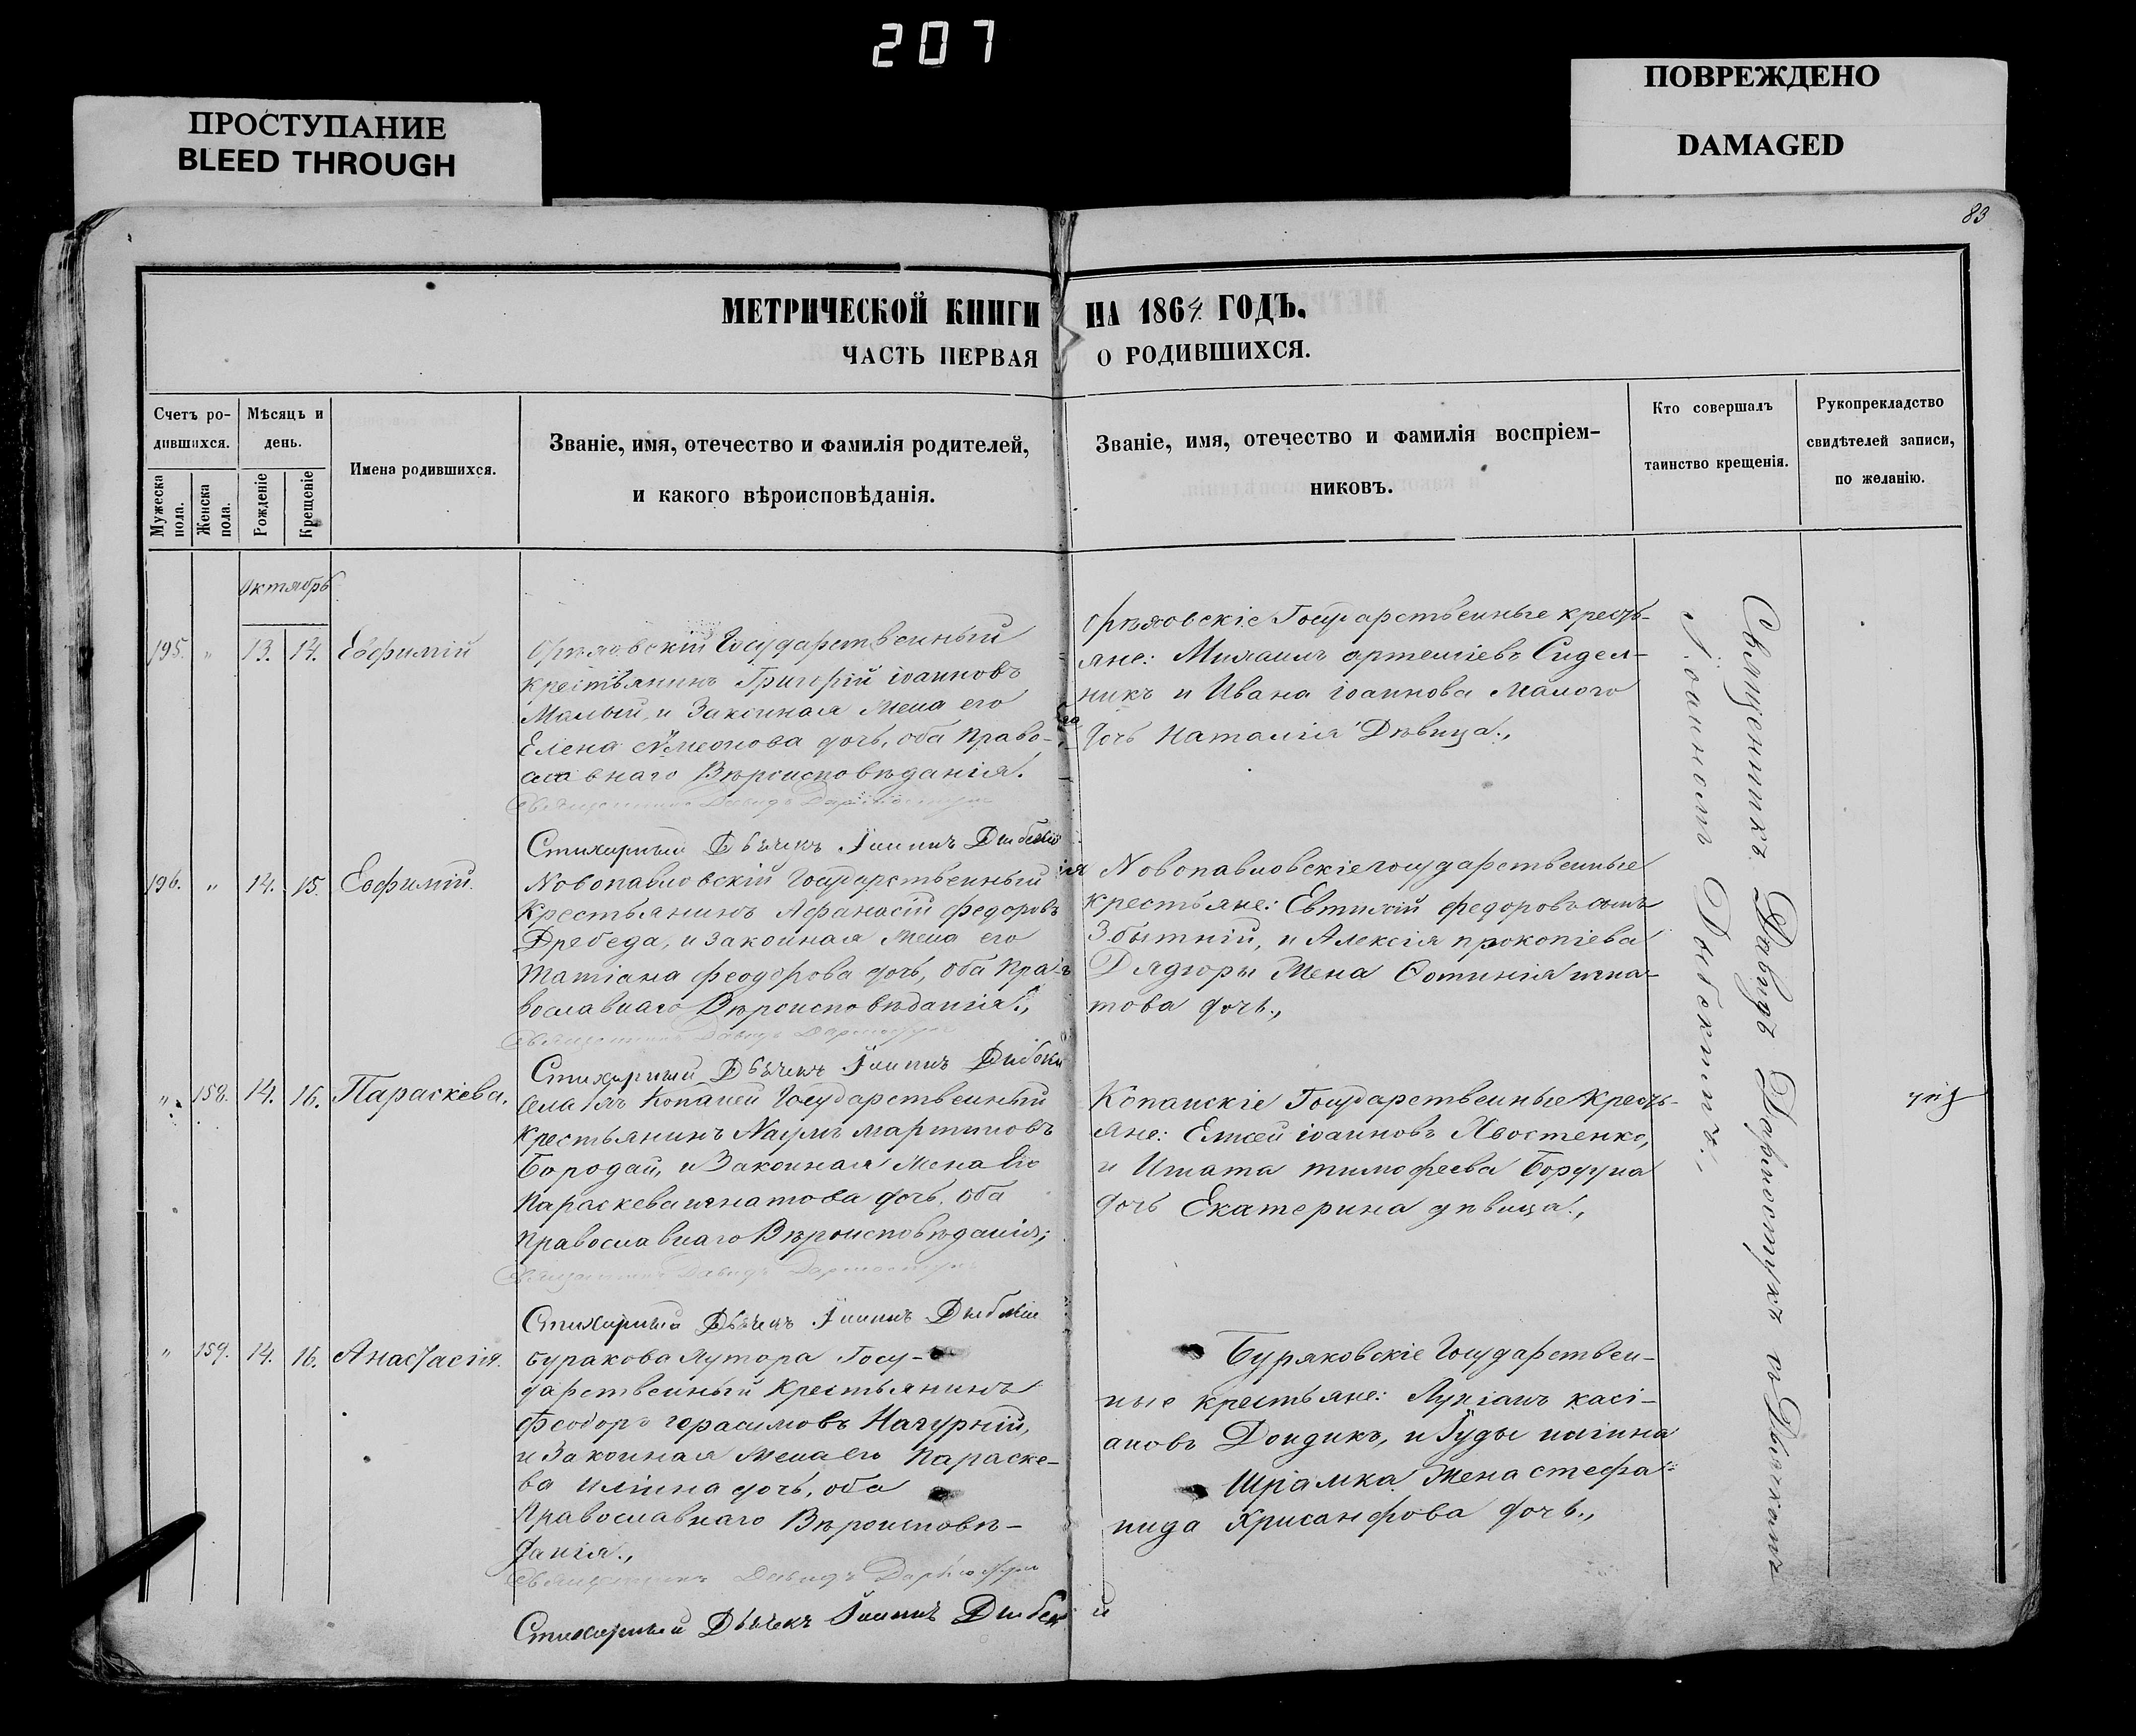 207
ПРОСТУПАНИЕ
BLEED THROUGH
ПОВРЕЖДЕНО
DAMAGED
83
МЕТРИЧЕСКОЙ КНИГИ НА 1864 ГОДЪ.
ЧАСТЬ ПЕРВАЯ О РОДИВШИХСЯ.
Счетъ ро-
дившихся.
Мужеска пола.
Женска пола.
Мѣсяцъ и
день.
Рожденіе
Крещеніе
Имена родившихся.
Званіе, имя, отечество и фамилія родителей,
и какого вѣроисповѣданія.
Званіе, имя, отечество и фамилія воспріем-
никовъ.
Кто совершалъ
таинство крещенія.
Рукопрекладство
свидѣтелей записи,
по желанію.
Октябрь
195. " 13. 14. Евфимій
Орѣховскій Государственный
крестьянинъ Григорій іоанновъ
Малый, и Законная Жена его
Елена Сѵмеонова дочь, оба Право-
славнаго Вѣроисповѣданія.
Священникъ Давидъ
Стихарный Дьячекъ Іоаннъ
Орѣховскіе Государственные кресть-
яне: Михаилъ артеміевъ Сидел-
никъ и Ивана іоаннова Малого
дочь Наталія Дѣвица.,
196. " 14. 15. Евфимій.
Новопавловскій Государственный
Крестьянинъ Афанасій федоровъ
Дребеда, и Законная Жена его
Татіана феодорова дочь, оба Пра-
вославнаго Вѣроисповѣданія.,
Священникъ Давидъ
Стихарный Дьячекъ Іоаннъ
Новопавловскіе государственные
крестьяне: Евтихій федоровъ сынъ
Збытній, и Алексія прокопіева
Дядюры Жена Фотинія игна-
това дочь.,
" 158. 14. 16. Параскева.
села Копаней Государственный
Крестьянинъ Наумъ мартиновъ
Бородай, и Законная Жена Его
Параскева игнатова дочь, оба
православнаго Вѣроисповѣданія;
Священникъ Давидъ
Стихарный Дьячекъ Іоаннъ
Копанскіе Государственные Кресть-
яне: Елисей іоанновъ Хвостенко,
и Игната тимофеева
дочь Екатерина дѣвица.,
" 159. 14. 16. Анастасія.
Буракова Хутора Госу-
дарственный Крестьянинъ
Феодоръ герасимовъ
и Законная Жена его Параске-
ва иліина дочь, оба
Православнаго Вѣроисповѣ-
данія.,
Священникъ Давидъ
Стихарный Дьячекъ Іоаннъ
Буряковскіе Государствен-
ные крестьяне: Лукіанъ касі-
ановъ Дондикъ, и Іуды иліина
Шрамка Жена стефа-
нида Хрисанфова дочь.,
Священникъ Давидъ и Дьячкомъ
Іоанномъ